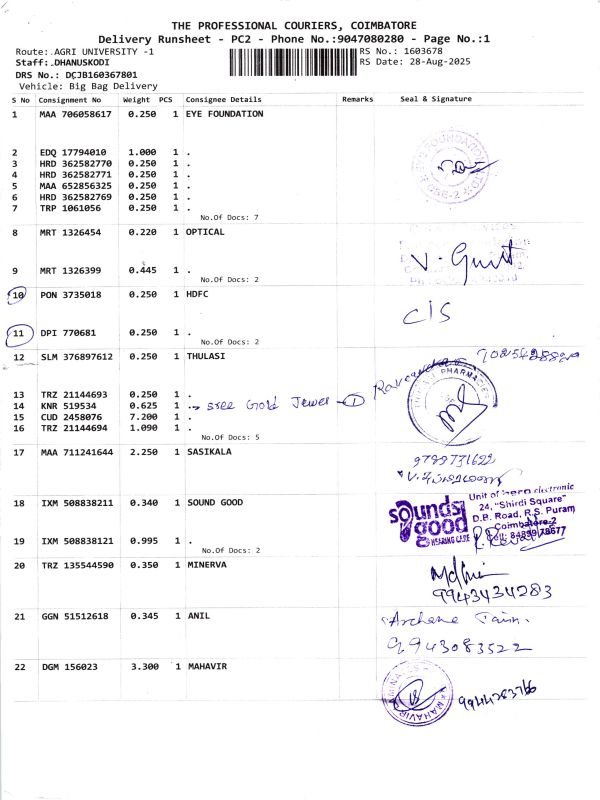 THE PROFESSIONAL COURIERS, COIMBATORE
Delivery Runsheet - PC2 - Phone No.:9047080280 - Page No.:1
Route:.AGRI UNIVERSITY -1
RS No.: 1603678
Staff:.DHANUSKODI
RS Date: 28-Aug-2025
DRS No.: DCJB160367801
Vehicle: Big Bag Delivery
S No Consignment No Weight PCS Consignee Details Remarks Seal & Signature
1 MAA 706058617 0.250 1 EYE FOUNDATION
2 EDQ 17794010 1.000 1 .
3 HRD 362582770 0.250 1 .
4 HRD 362582771 0.250 1 .
5 MAA 652856325 0.250 1 .
6 HRD 362582769 0.250 1 .
7 TRP 1061056 0.250 1 .
No.Of Docs: 7
8 MRT 1326454 0.220 1 OPTICAL
9 MRT 1326399 0.445 1 .
No.Of Docs: 2
10 PON 3735018 0.250 1 HDFC
C/S
11 DPI 770681 0.250 1 .
No.Of Docs: 2
12 SLM 376897612 0.250 1 THULASI
13 TRZ 21144693 0.250 1 .
14 KNR 519534 0.625 1 . sree Gold Jewel - 1
15 CUD 2458076 7.200 1 .
16 TRZ 21144694 1.090 1 .
No.Of Docs: 5
17 MAA 711241644 2.250 1 SASIKALA
9789731622
18 IXM 508838211 0.340 1 SOUND GOOD
sounds good
HEARING CARE
Unit of hero electronic
24, "Shirdi Square"
D.B. Road, R.S. Puram
Coimbatore-2
19 IXM 508838121 0.995 1 .
No.Of Docs: 2
20 TRZ 135544590 0.350 1 MINERVA
9943434283
21 GGN 51512618 0.345 1 ANIL
Archana Jain.
9943083522
22 DGM 156023 3.300 1 MAHAVIR
MAHAVIR